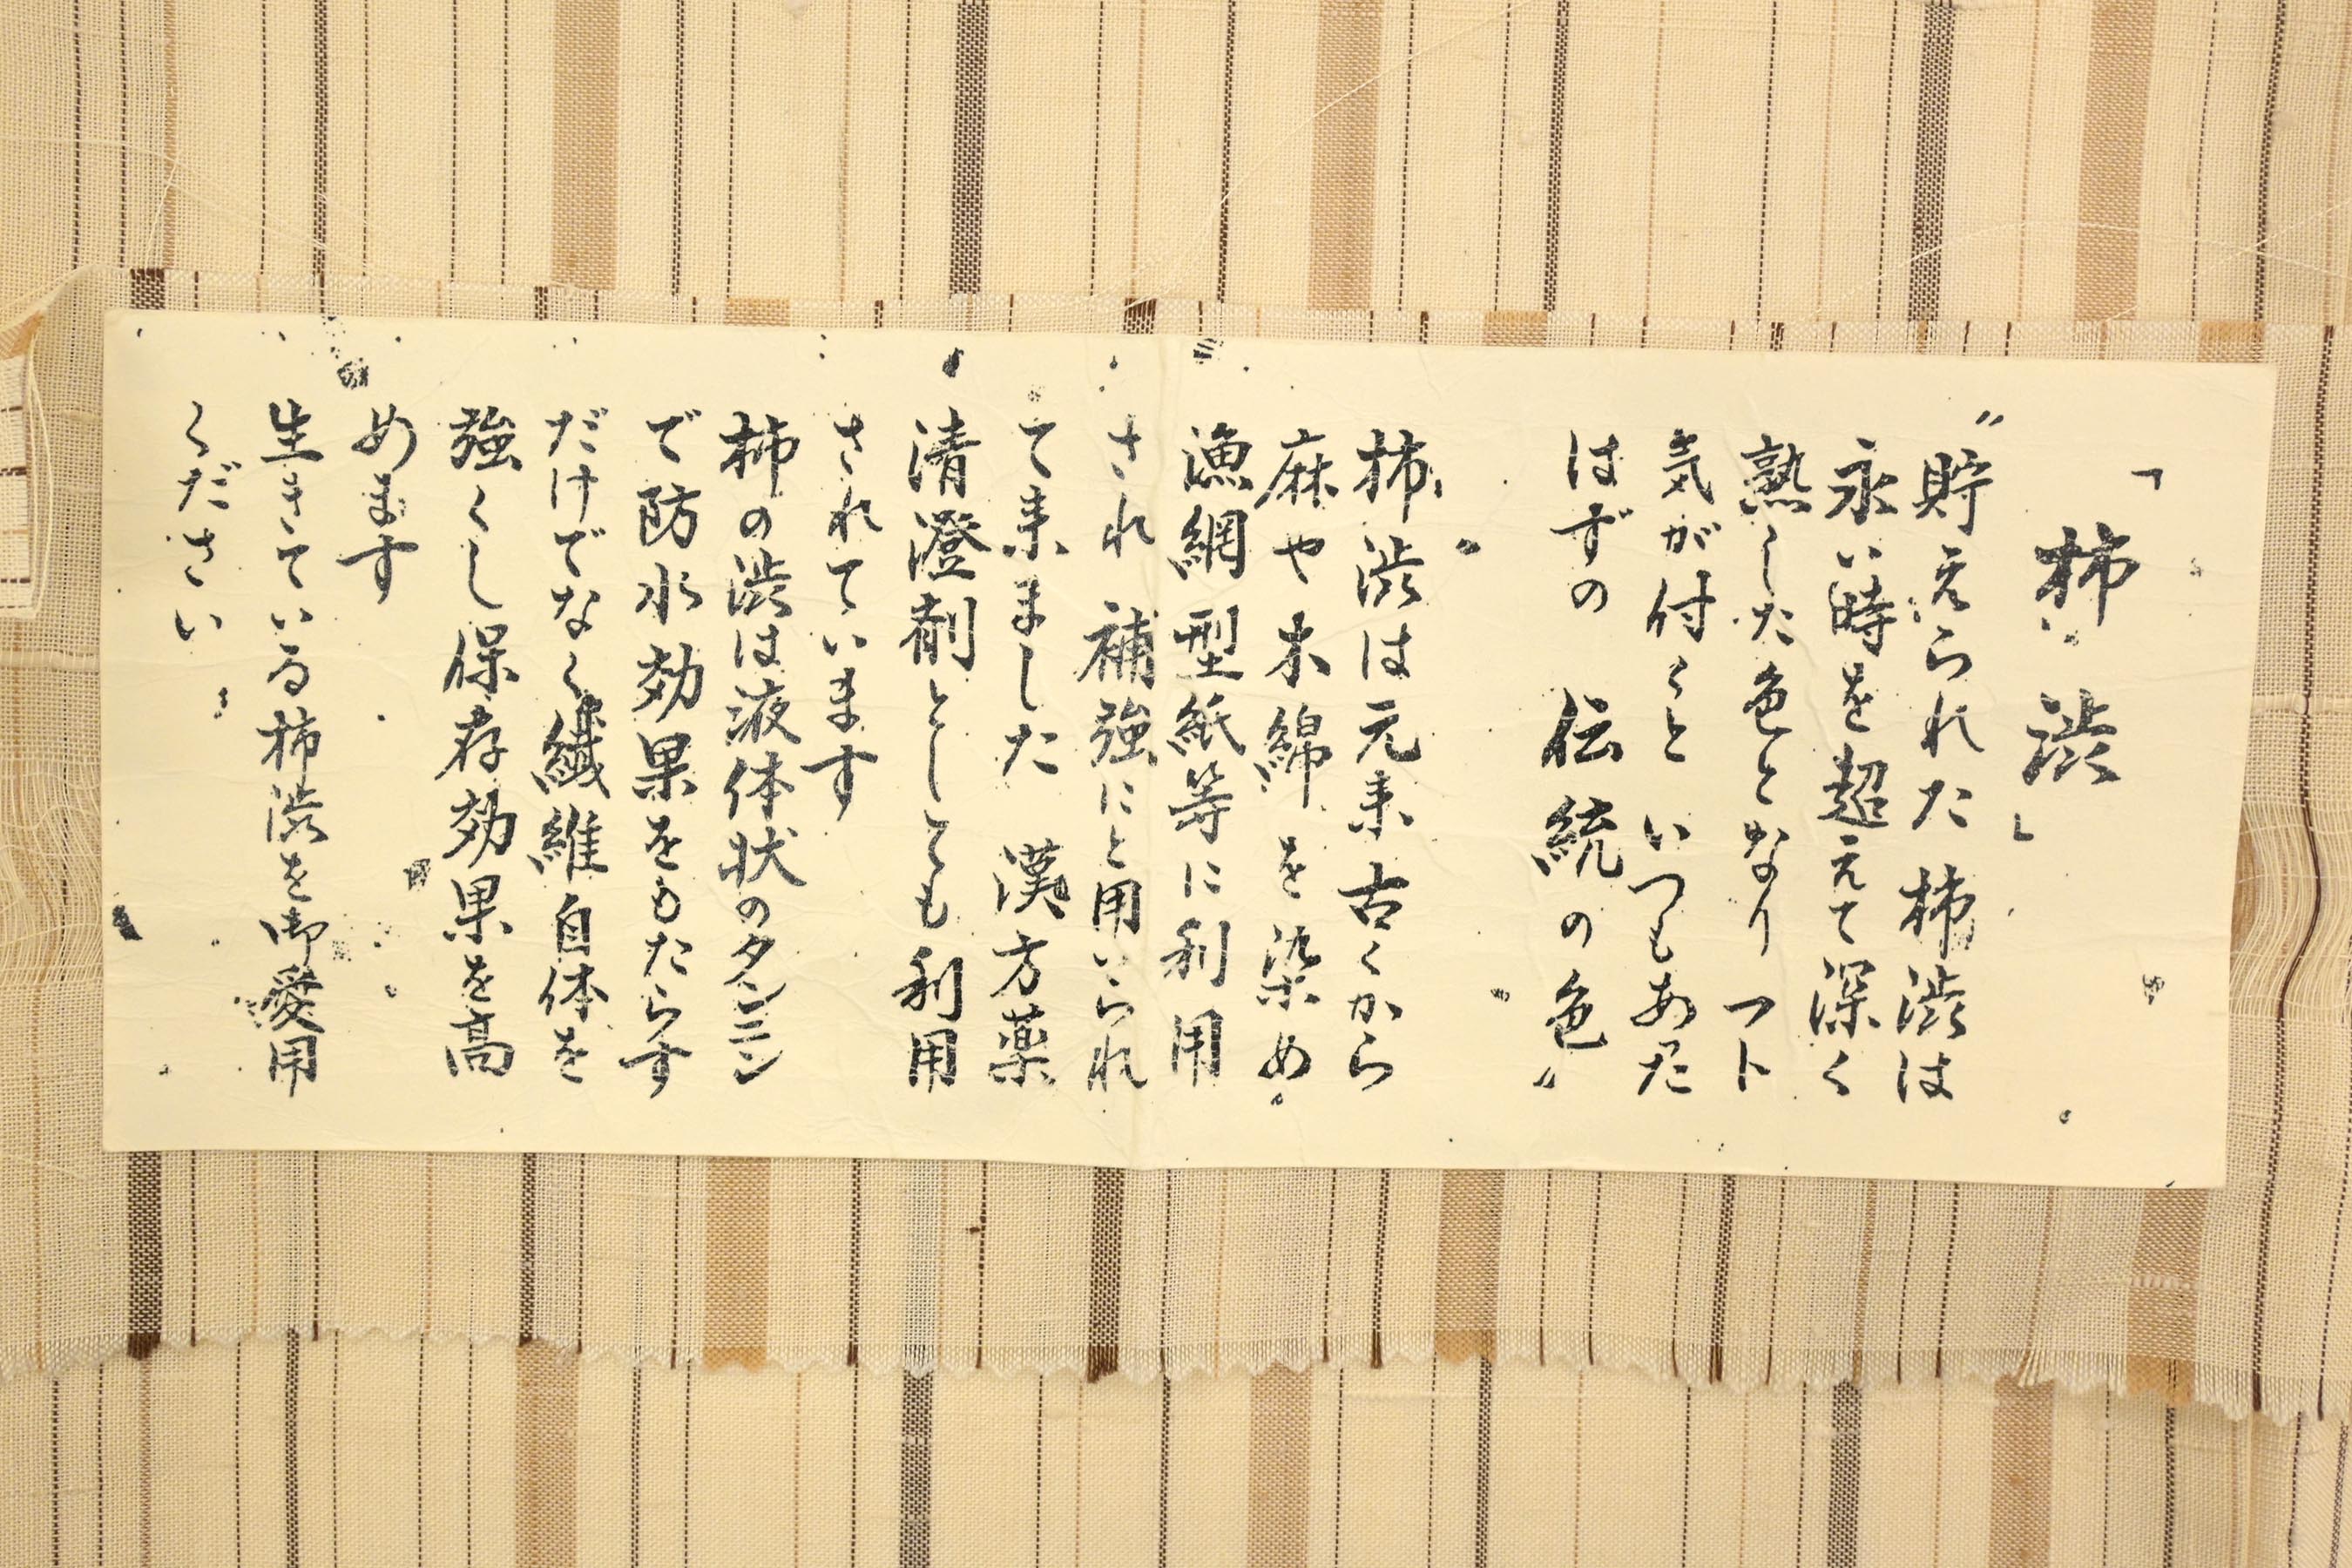 「柿渋」
"貯えられた柿渋は
永い時を超えて深く
熟した色となり フト
気が付くと いつもあった
はずの 伝統の色"
柿渋は元来古くから
麻や木綿を染め
漁網型紙等に利用
され 補強にと用いられ
て来ました 漢方薬
清澄剤としても利用
されています
柿の渋は液体状のタンニン
で防水効果をもたらす
だけでなく繊維自体を
強くし保存効果を高
めます
生きている柿渋を御愛用
ください